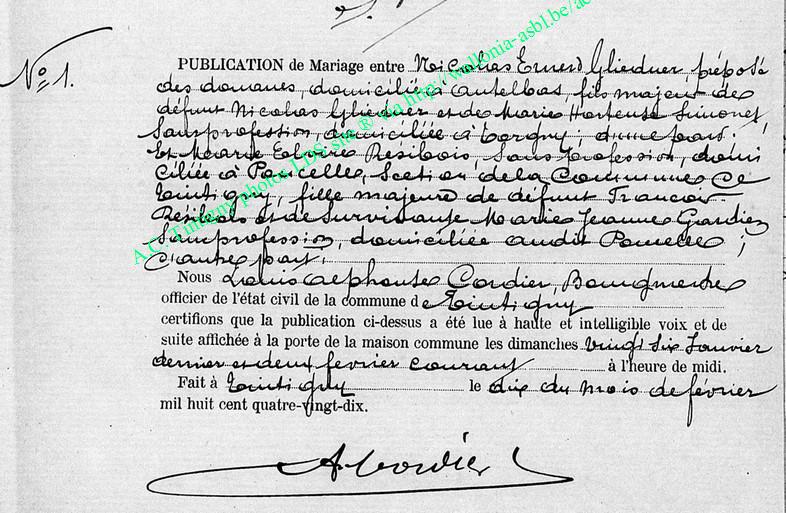 No 1.
PUBLICATION de Mariage entre Nicolas Ernest Gliedner, préposé
des douanes, domicilié à Autelbas, fils majeur de
défunt Nicolas Gliedner et de Marie Hortense Simonet,
sans profession, domiciliée à Torgny, d'une part.
Et Marie Résibois, sans profession, domi
ciliée à Poncelle, Section de la Commune de
Tintigny, fille majeure de défunt François
Résibois et de survivante Marie Jeanne Gardien
sans profession, domiciliée audit Poncelle ;
d'autre part.
Nous Louis Alphonse Cordier, Bourgmestre
officier de l'état civil de la commune de Tintigny
certifions que la publication ci-dessus a été lue à haute et intelligible voix et de
suite affichée à la porte de la maison commune les dimanches vingt six Janvier
dernier et deux février courant à l'heure de midi.
Fait à Tintigny le dix du mois de février
mil huit cent quatre-vingt-dix.
A. Cordier
A.C. Tintigny photos LDS site ® via http://wallonia-asbl.be/ac